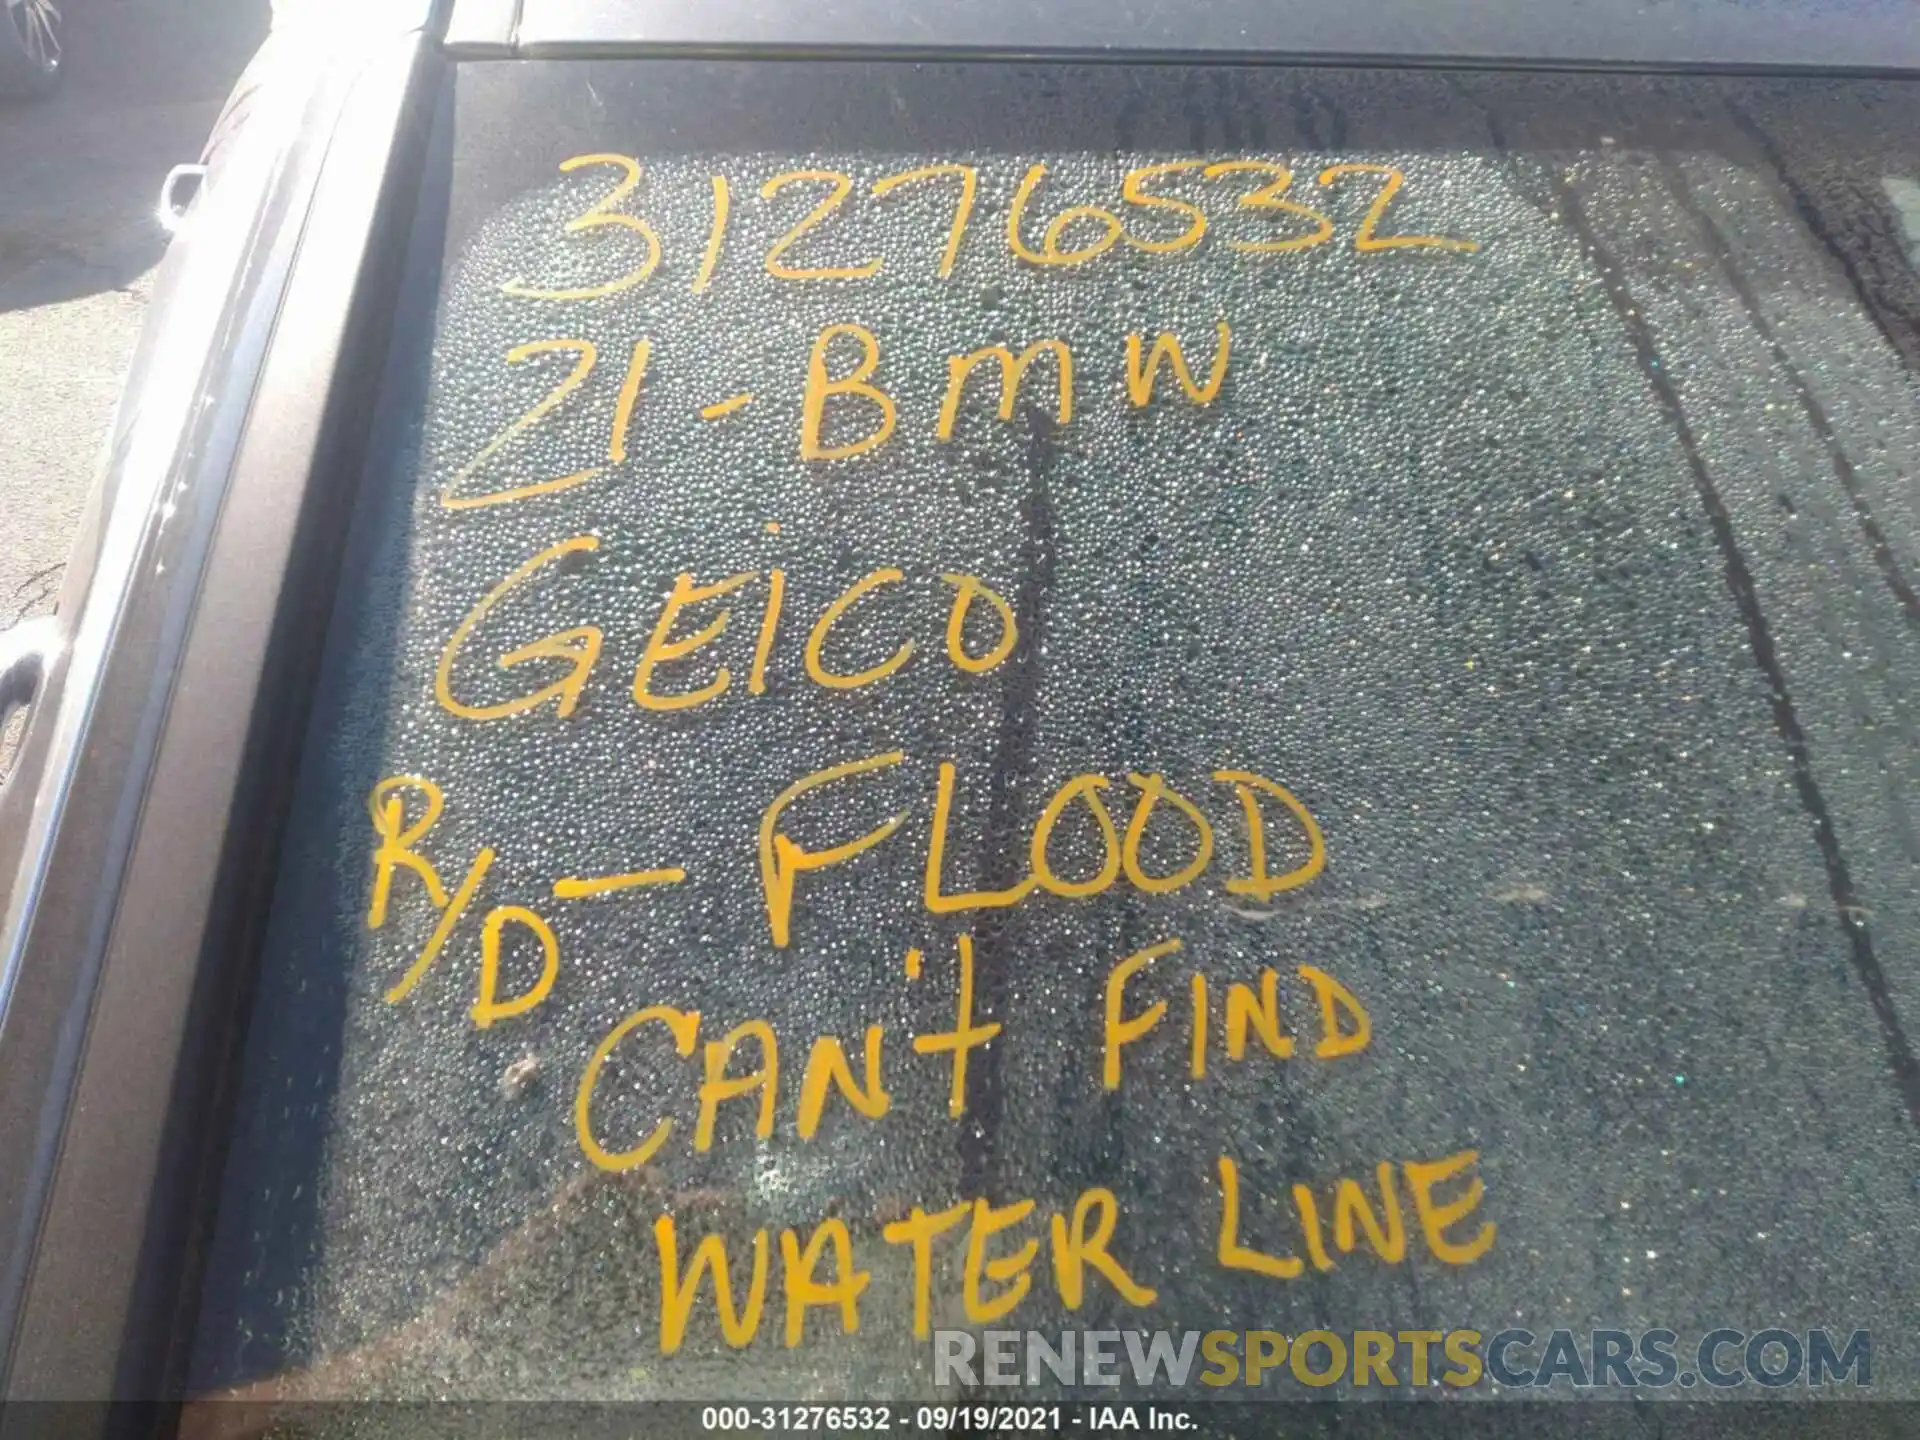 31276532
21-BMW
GEICO
R/D - FLOOD
CAN'T FIND
WATER LINE
RENEWSPORTSCARS.COM
000-31276532 - 09/19/2021 - IAA Inc.